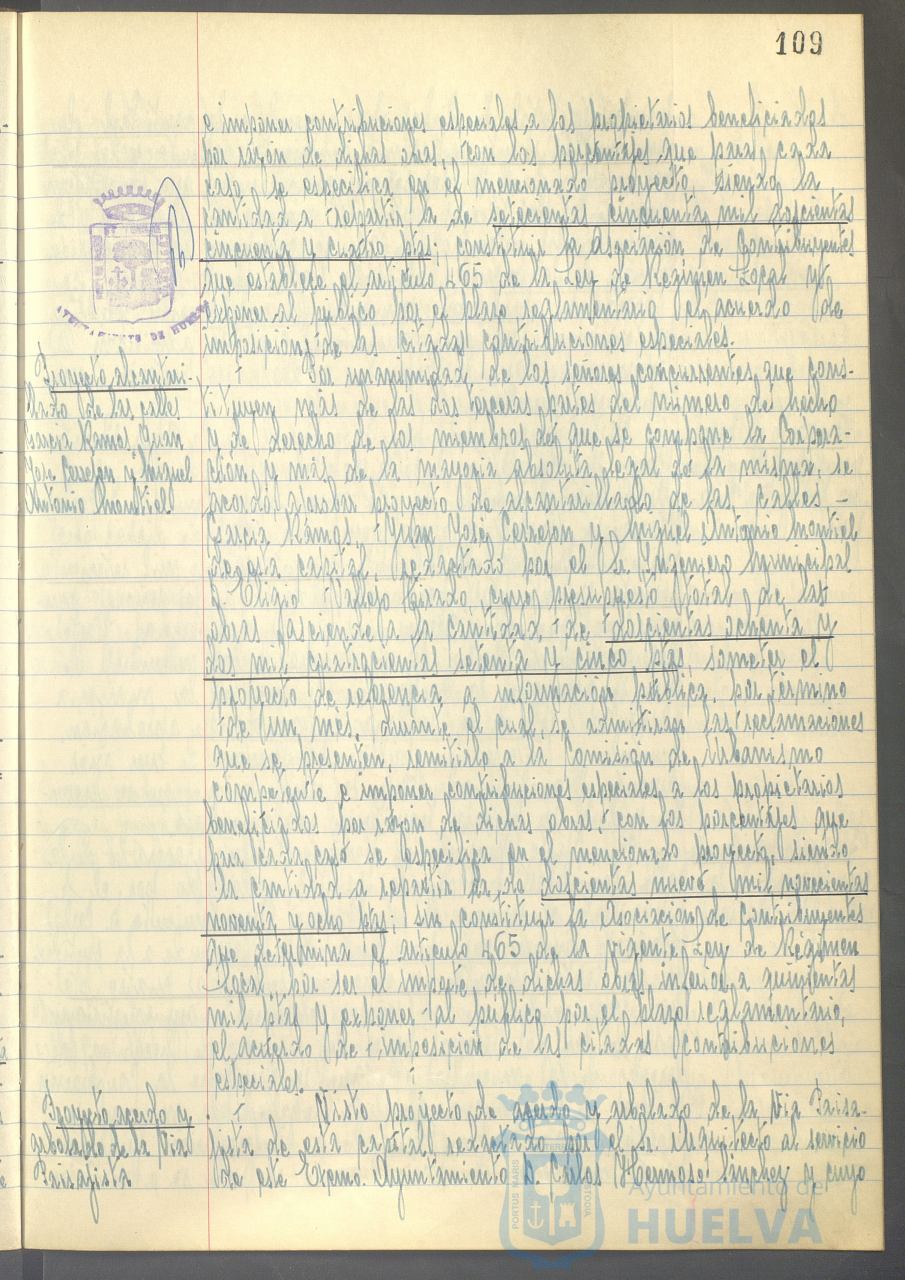 109
e imponer contribuciones especiales a los propietarios beneficiados
por razón de dichas obras, con los porcentajes que para cada
caso, se especifica en el mencionado proyecto, siendo la
cantidad a repartir la de setecientas cincuenta mil doscientas
cincuenta y cuatro ptas; constituir la Asociación de Contribuyentes
que establece el artículo 465 de la Ley de Régimen Local y
exponer al público por el plazo reglamentario el acuerdo de
imposición de las citadas contribuciones especiales.
AYUNTAMIENTO DE HUELVA
Proyecto alcantari-
llado de las calles
García Ramos, Juan
José Cerejon y Miguel
Antonio Montiel
Por unanimidad de los señores concurrentes, que cons-
tituyen más de las dos terceras partes del número de hecho
y de derecho de los miembros de que se compone la Corpora-
ción, y más de la mayoría absoluta legal de la misma, se
acordó aprobar proyecto de alcantarillado de las calles -
García Ramos, Juan José Cerejon y Miguel Antonio Montiel
de esta capital, redactado por el Sr. Ingeniero Municipal
D. Eligio Vallejo, cuyo presupuesto total de las
obras asciende a la cantidad de doscientas ochenta y
dos mil cuatrocientas setenta y cinco ptas, someter el
proyecto de referencia a información pública, por término
de un mes, durante el cual se admitirán las reclamaciones
que se presenten, remitirlo a la Comisión de Urbanismo
competente e imponer contribuciones especiales, a los propietarios
beneficiados por razón de dichas obras, con los porcentajes que
para cada caso se especifica en el mencionado proyecto, siendo
la cantidad a repartir la de doscientas nueve mil novecientas
noventa y ocho ptas; sin constituir la Asociación de Contribuyentes
que determina el artículo 465 de la vigente Ley de Régimen
Local, por ser el importe de dichas obras inferior a quinientas
mil ptas y exponer al público por el plazo reglamentario,
el acuerdo de imposición de las citadas contribuciones
especiales.
Proyecto acerdo y
arbolado de la Via
Paisajista
Visto proyecto de acerdo y arbolado de la Via Paisa-
jista de esta capital, redactado por el Sr. Arquitecto al servicio
de este Excmo. Ayuntamiento D. Carlos Hermoso Sanchez y cuyo
PORTUS MARIS
CUSTODIA
Ayuntamiento de
HUELVA